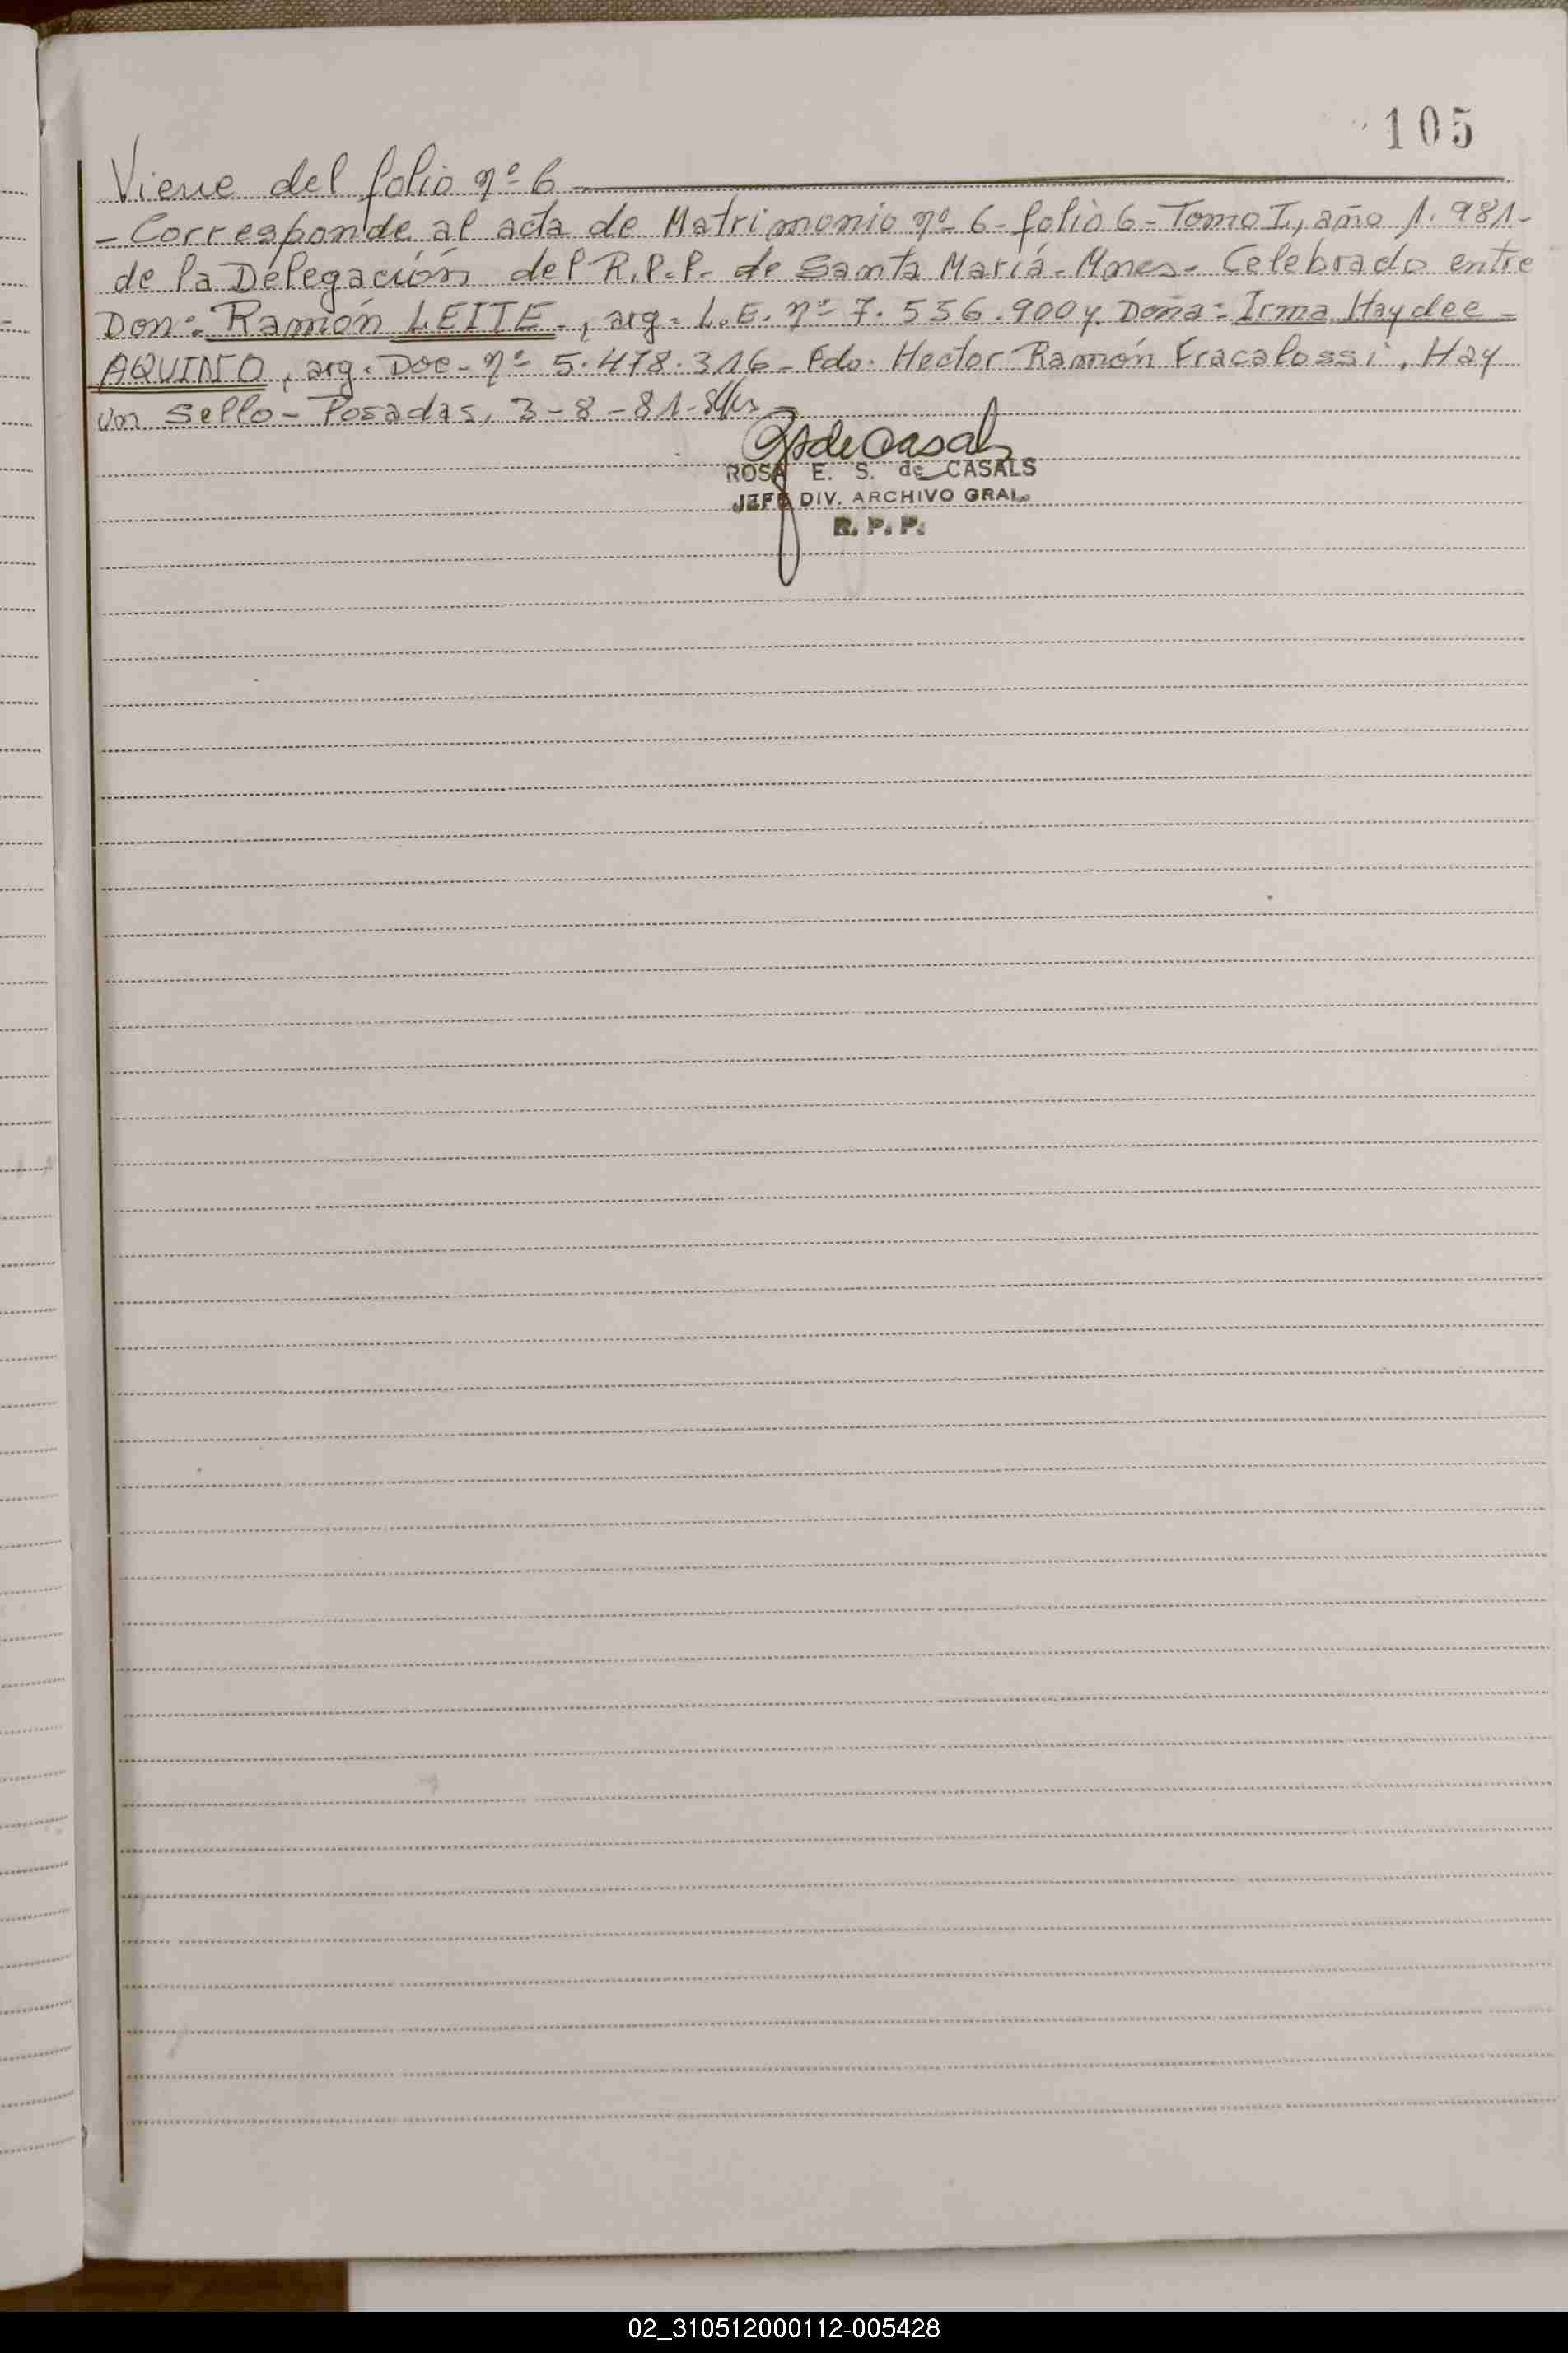 105
Viene del folio nº 6
- Corresponde al acta de Matrimonio nº 6 - folio 6 - Tomo I, año 1.981-
de la Delegación del R.P.P. de Santa María - Mnes - Celebrado entre
Don: Ramón LEITE -, arg. L.E. nº 7.556.900 y Doña: Irma Haydee -
AQUINO, arg. Doc - nº 5.478.316 - Fdo. Hector Ramón Fracalossi, Hay
un Sello - Posadas, 3-8-81-
ROSA E. S. de CASALS
JEFE DIV. ARCHIVO GRAL.
R. P. P.
02_310512000112-005428